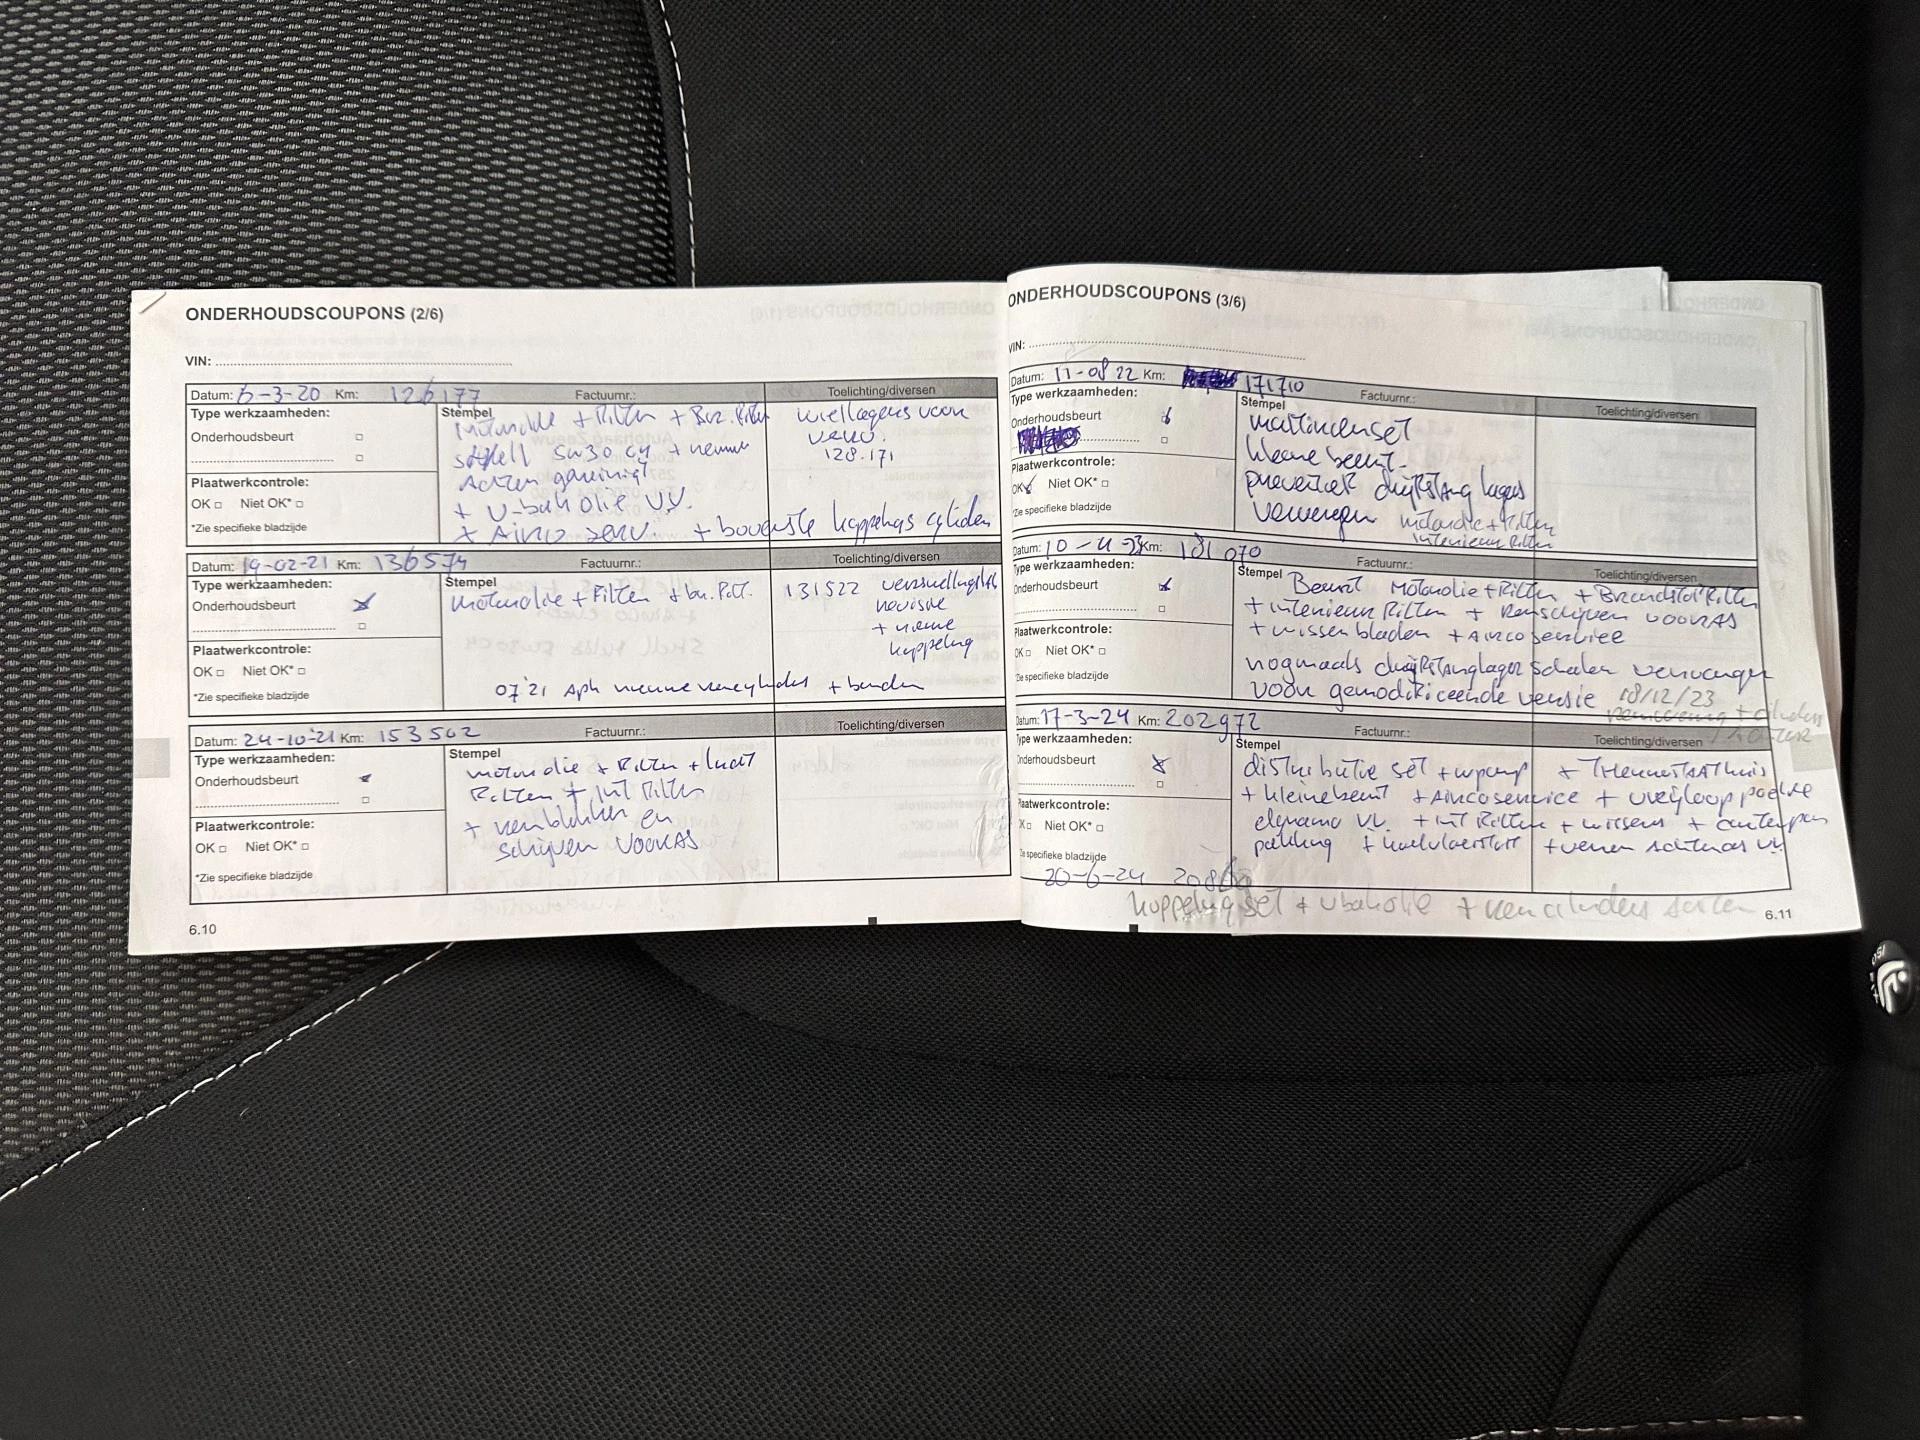 ONDERHOUDSCOUPONS (2/6)
VIN:
Datum: 6-3-20 Km: 126177 Factuurnr.: Toelichting/diversen
Type werkzaamheden:
Onderhoudsbeurt
Stempel
motorolie + Filter + Br. Filter
5w30 + nieuwe
Achter gereinigd
+ V-bak olie VV.
+ Airco serv. + bovenste koppelings cilinder
wiellagers voor
vern.
128.171
Plaatwerkcontrole:
OK Niet OK*
*Zie specifieke bladzijde
Datum: 19-02-21 Km: 136574 Factuurnr.: Toelichting/diversen
Type werkzaamheden:
Onderhoudsbeurt
Stempel
motorolie + Filter + br. Filt.
131522 versnellingsbak
revisie
+ nieuwe
koppeling
Plaatwerkcontrole:
OK Niet OK*
*Zie specifieke bladzijde
07'21 Apk nieuwe + banden
Datum: 24-10-21 Km: 153502 Factuurnr.: Toelichting/diversen
Type werkzaamheden:
Onderhoudsbeurt
Stempel
motorolie + Filter + lucht
Filter + int Filter
+ remblokken en
schijven VOORAS
Plaatwerkcontrole:
OK Niet OK*
*Zie specifieke bladzijde
6.10
ONDERHOUDSCOUPONS (3/6)
VIN:
Datum: 11-08 22 Km: 171710 Factuurnr.: Toelichting/diversen
Type werkzaamheden:
Onderhoudsbeurt
Stempel
kleine beurt
preventief drijfstang lagers
vervangen motorolie + Filter
interieur Filter
Plaatwerkcontrole:
OK Niet OK*
*Zie specifieke bladzijde
Datum: Km: 181 070 Factuurnr.: Toelichting/diversen
Type werkzaamheden:
Onderhoudsbeurt
Stempel
Beurt Motorolie + Filter + Brandstof Filter
+ interieur Filter + Remschijven VOORAS
+ wissenbladen + Airco service
nogmaals drijfstanglager schalen vervangen
voor gemodificeerde versie 18/12/23
Plaatwerkcontrole:
OK Niet OK*
Zie specifieke bladzijde
Datum: 17-3-24 Km: 202972 Factuurnr.: Toelichting/diversen
Type werkzaamheden:
Onderhoudsbeurt
Stempel
distributie set + wpomp + THermostAAThuis
+ kleine beurt + Airco service +
dynamo VV. + int Filter + wissers + carterpan
pakking + + veren Achteras VV.
Plaatwerkcontrole:
Niet OK*
Zie specifieke bladzijde
20-6-24
koppeling set + vbakolie + rem cilinders achter
6.11